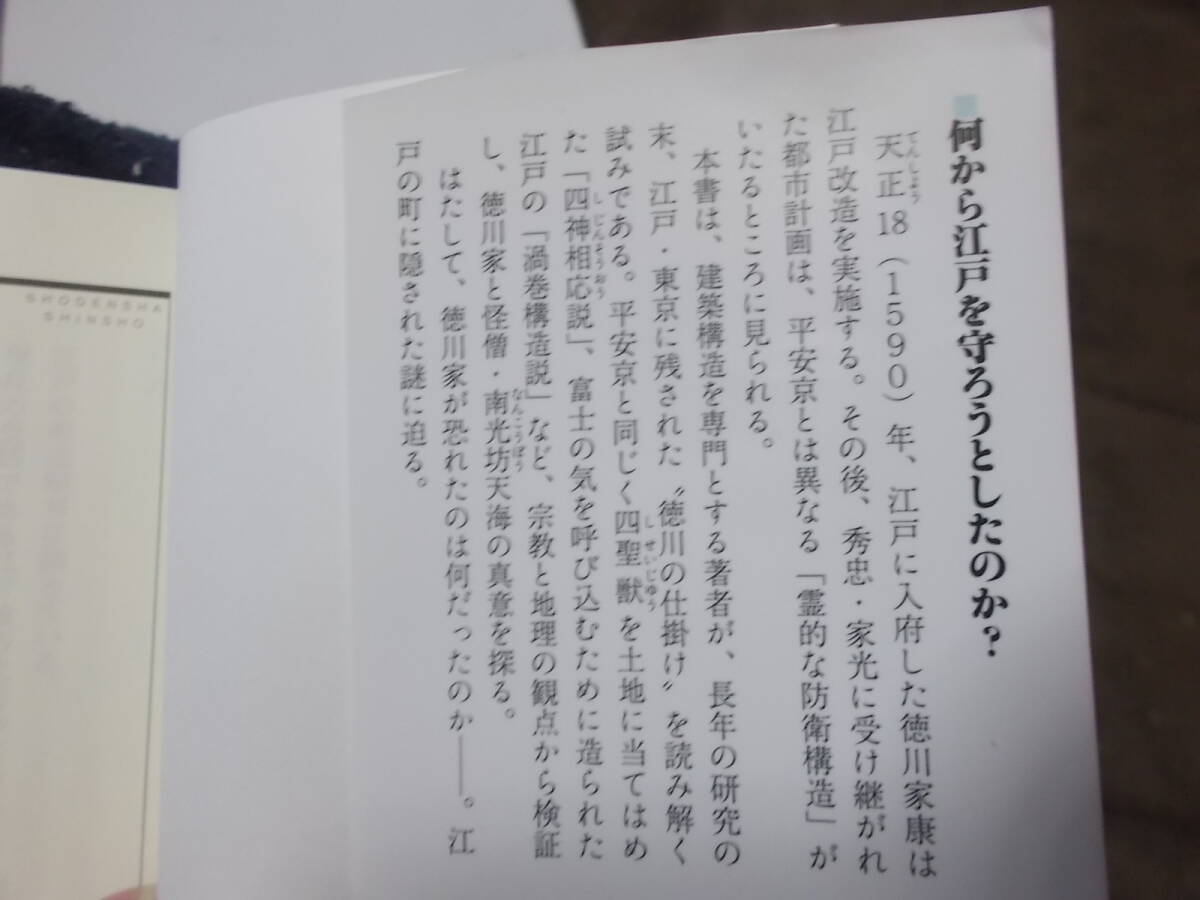 何から江戸を守ろうとしたのか?
天正18(1590)年、江戸に入府した徳川家康は
江戸改造を実施する。その後、秀忠・家光に受け継がれ
た都市計画は、平安京とは異なる「霊的な防衛構造」が
いたるところに見られる。
本書は、建築構造を専門とする著者が、長年の研究の
末、江戸・東京に残された〝徳川の仕掛け〟を読み解く
試みである。平安京と同じく四聖獣を土地に当てはめ
た「四神相応説」、富士の気を呼び込むために造られた
江戸の「渦巻構造説」など、宗教と地理の観点から検証
し、徳川家と怪僧・南光坊天海の真意を探る。
はたして、徳川家が恐れたのは何だったのか――。江
戸の町に隠された謎に迫る。
てんしょう
しせいじゅう
しじんそうおう
なんこうぼう
SHODENSHA
SHINSHO